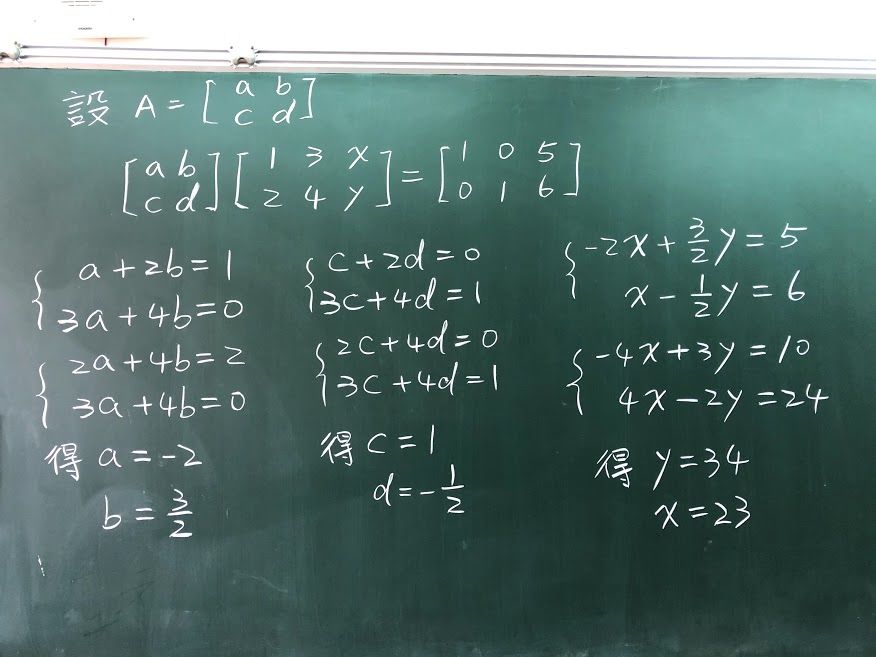 設 A = [a b; c d]
[a b; c d] [1 3 x; 2 4 y] = [1 0 5; 0 1 6]
{ a + 2b = 1
3a + 4b = 0
{ 2a + 4b = 2
3a + 4b = 0
得 a = -2
b = 3/2
{ c + 2d = 0
3c + 4d = 1
{ 2c + 4d = 0
3c + 4d = 1
得 c = 1
d = - 1/2
{ -2x + 3/2 y = 5
x - 1/2 y = 6
{ -4x + 3y = 10
4x - 2y = 24
得 y = 34
x = 23